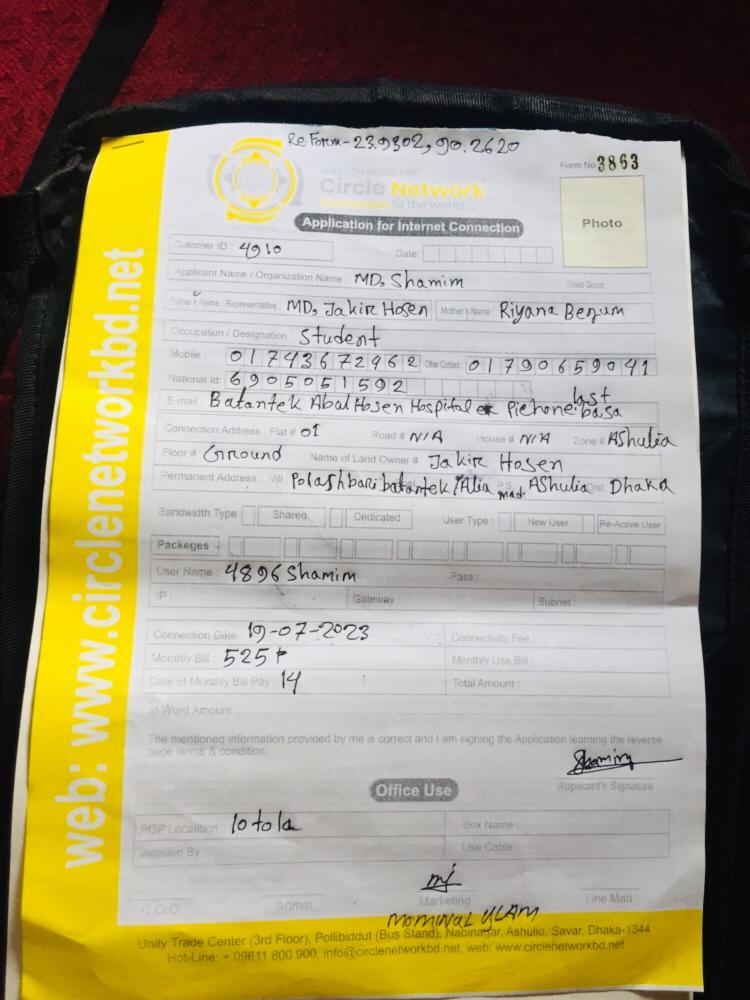 Re Form - 23.9302, 90.2620
Form No 3863
NATIONWIDE ISP
Circle Network
Connected to the world...
Application for Internet Connection
Photo
Cutomer ID : 4910 Date:
Applicant Name / Organization Name : MD, Shamim Blood Group
Father's Name : Representative : MD, Jakir Hosen Mother's Name : Riyana Begum
Occupation / Designation : Student
Mobile : 01743672962 Other Contact : 01790659041
National Id: 6905051592
E-mail : Batantek Abal Hosen Hospital er Pichone last basa
Connection Address : Flat # 01 Road # N/A House # N/A Zone # Ashulia
Floor # Ground Name of Land Owner # Jakir Hosen
Permanent Address : Vill : Polashbari batantek /Alia mad. P.S. Ashulia Dist Dhaka
Bandwidth Type Shared Dedicated User Type : New User Re-Active User
Packeges
User Name : 4896 Shamim Pass :
IP : Gateway : Subnet :
Connection Date 19-07-2023 Connectivity Fee :
Monthly Bill : 525 Monthly Use Bill :
Date of Monthly Bill Pay : 14 Total Amount :
In Word Amount
The mentioned information provided by me is correct and I am signing the Application learning the reverse
page terms & condition.
Shamim
Applicant's Signature
Office Use
POP Localition 10 tola Box Name :
Installed By Use Cable
C.O.O Admin Marketing Line Man
Mominul Islam
Unity Trade Center (3rd Floor), Pollibiddut (Bus Stand), Nabinagar, Ashulia, Savar, Dhaka-1344
Hot-Line: + 09611 800 900, info@circlenetworkbd.net, web: www.circlenetworkbd.net
web: www.circlenetworkbd.net